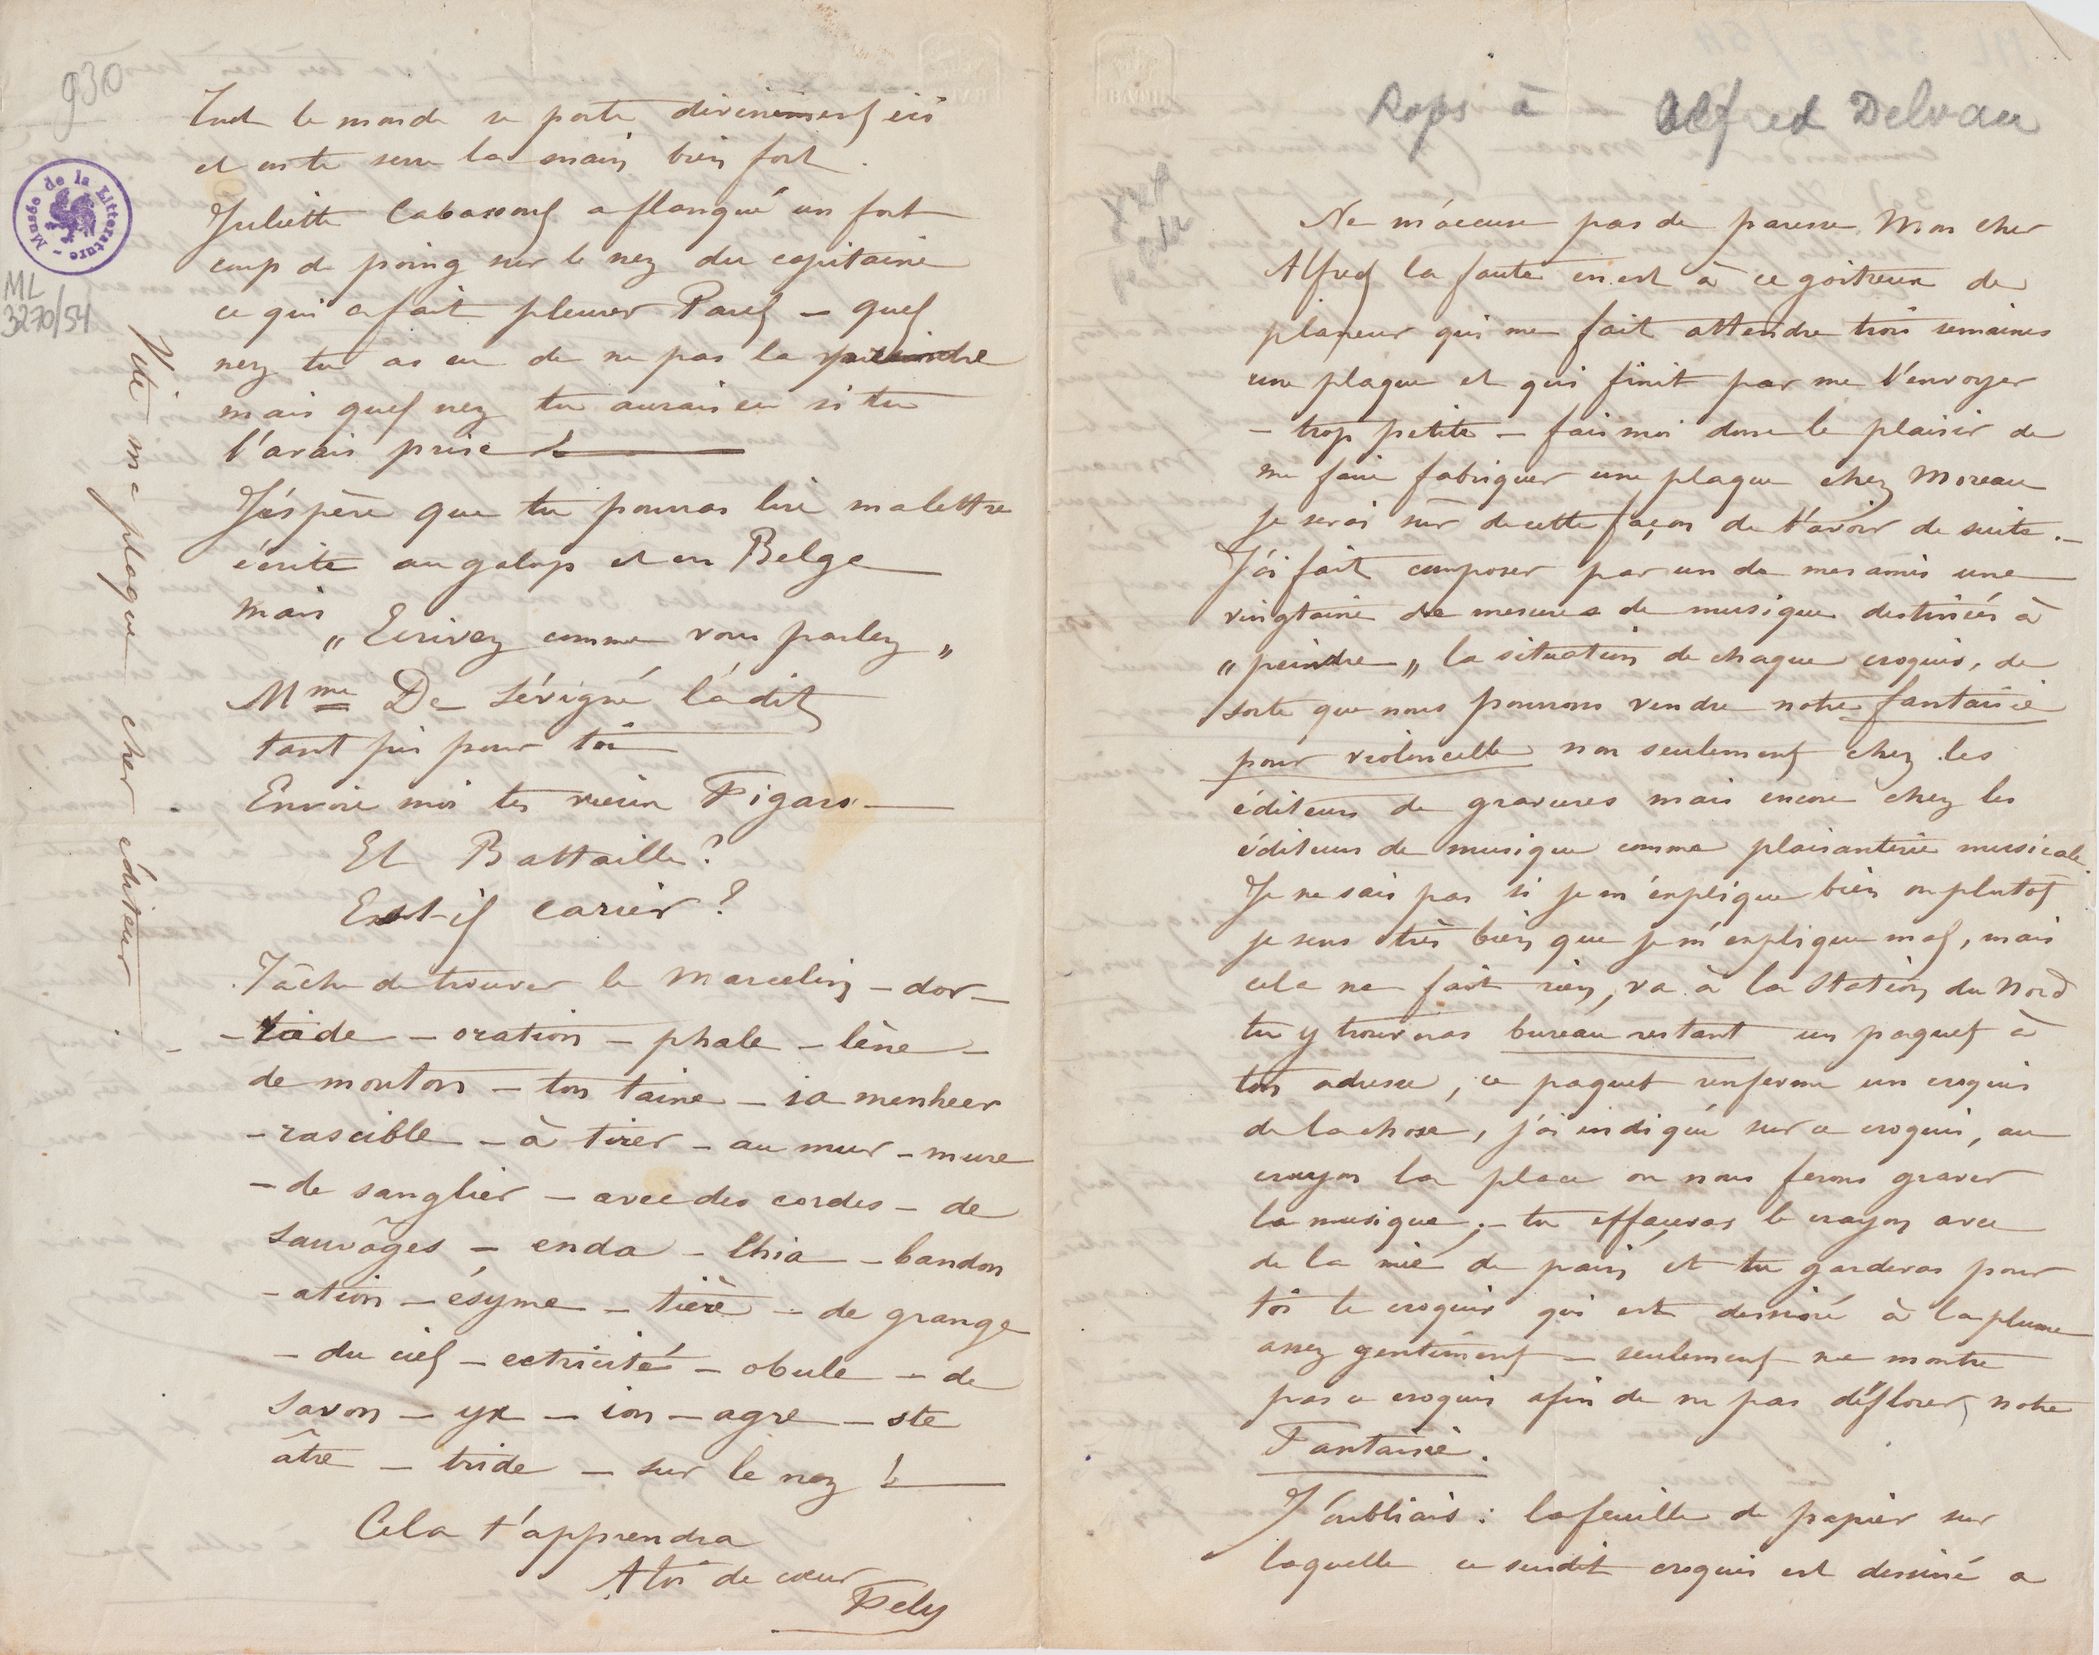 930
Musée de la Littérature
ML
3270/54
Tout le monde se porte divinement ici
et on te serre la main bien fort.
Juliette Cabassoul a flanqué un fort
coup de poing sur le nez du capitaine
ce qui a fait pleurer Paul – quel
nez tu as eu de ne pas la
mais quel nez tu aurais eu si tu
l'avais prise !
J'éspère que tu pourras lire ma lettre
écrite au galop et en Belge
mais „ Ecrivez comme vous parlez „
Mme De Sévigné l'a dit
tant pis pour toi
Envoie moi tes vieux Figaro –
Et Battaille ?
Est-il carier ?
Tâche de trouver le Marcelin – dor –
– ride – oration – phale – lène –
de mouton – ton taine – ia menheer
– rascible – à tirer – au mur – mure
– de sanglier – avec des cordes – de
sauvâges – enda – lhia – bandon
– ation – ésyme – tière – de grange
– du ciel – ectricité – obule – de
savon – yx – ion – agre – ste
âtre – tride – sur le nez !
Cela t'apprendra
A toi de cœur
Fely
Vite ma plaque cher éditeur
Rops à Alfred Delvau
Ne m'accuse pas de paresse Mon cher
Alfred la faute en est à ce goitreux de
planeur qui me fait attendre trois semaines
une plaque et qui finit par me l'envoyer
– trop petite – fais moi donc le plaisir de
me faire fabriquer une plaque chez Moreau
je serai sûr de cette façon de l'avoir de suite. –
J'ai fait composer par un de mes amis une
vingtaine de mesures de musique destinées à
„ peindre „ la situation de chaque croquis, de
sorte que nous pourrons vendre notre fantaisie
pour violoncelle non seulement chez les
éditeurs de gravures mais encore chez les
éditeurs de musique comme plaisanterie musicale.
Je ne sais pas si je m'explique bien ou plutot
je sens très bien que je m'explique mal, mais
cela ne fait rien, va à la Station du Nord
tu y trouveras bureau restant un paquet à
ton adresse, ce paquet renferme un croquis
de la chose, j'ai indiqué sur ce croquis, au
crayon la place ou nous ferons graver
la musique ; – tu effaceras le crayon avec
de la mie de pain, et tu garderas pour
toi le croquis qui est dessiné à la plume
assez gentiment – seulement ne montre
pas ce croquis afin de ne pas déflorer notre
Fantaisie.
J'oubliais : la feuille de papier sur
laquelle ce susdit croquis est dessiné a